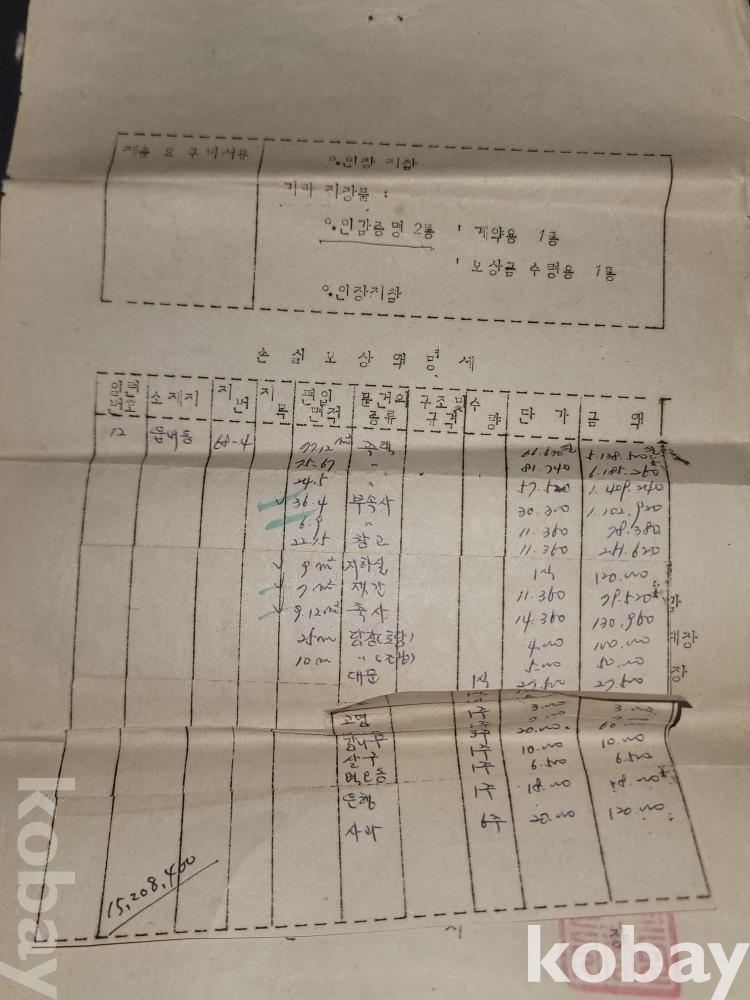 제출 요 구 비서류
o.인장 지참
기타 지장물 :
o.인감증명 2통 ' 계약용 1통
' 보상금 수령용 1통
o.인장지참
손 실 보 상 액 명 세
일련번호 소재지 지번 지목 편입면적 물건의종류 구조및규격 수량 단 가 금 액
12 읍내동 68-4 77.12 m² 주택 66.630 5.138.500
75.67 〃 81.740 6.185.260
24.5 〃 57.520 1.409.240
✓ 36.4 부속사 30.300 1.102.920
6.9 〃 11.360 78.380
22.15 창고 11.360 251.620
✓ 9 m² 지하실 1식 120.000
✓ 7 m² 잿간 11.360 79.520
✓ 9.12 m² 축사 14.360 130.960
25m 담장(토담) 4.000 100.000
10m 〃 5.000 50.000
대문 1식 27.500 27.500
고염 1주 3.000 3.000
감나무 3주 20.000 60.000
살구 1주 10.000 10.000
벽오동 1주 6.500 6.500
은행 1주 18.000 18.000
사과 6주 20.000 120.000
15,208,400
장
kobay
kobay